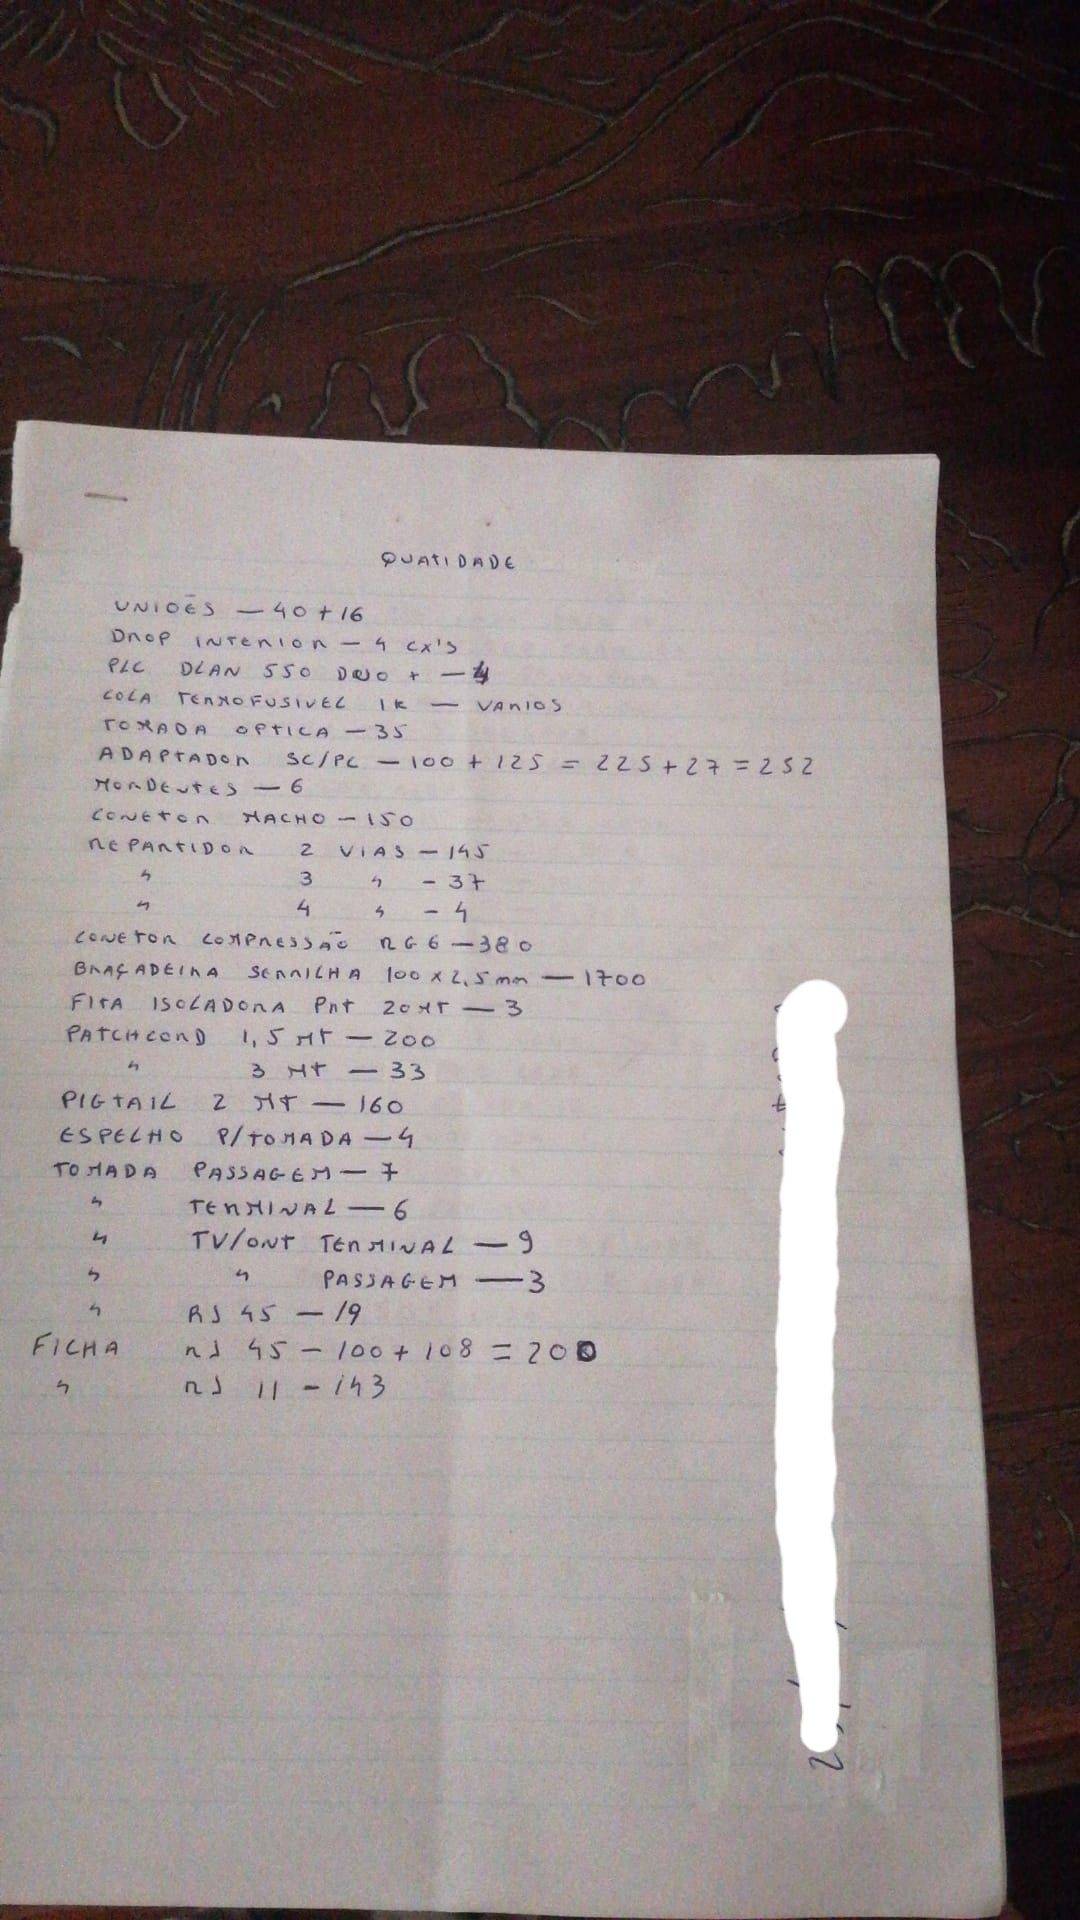 QUATIDADE
UNIOĒS — 40 + 16
DROP INTERIOR — 4 CX'S
PLC DLAN 550 DUO + — 4
COLA TERMOFUSIVEL 1K — VARIOS
TOMADA OPTICA — 35
ADAPTADOR SC/PC — 100 + 125 = 225 + 27 = 252
MORDENTES — 6
CONETOR MACHO — 150
REPARTIDOR 2 VIAS — 145
" 3 " - 37
" 4 " - 4
CONETOR COMPRESSÃO RG 6 — 380
BRAÇADEIRA SERRILHA 100 x 2,5 mm — 1700
FITA ISOLADORA PRT 20 MT — 3
PATCHCORD 1,5 MT — 200
" 3 MT — 33
PIGTAIL 2 MT — 160
ESPELHO P/TOMADA — 4
TOMADA PASSAGEM — 7
" TERMINAL — 6
" TV/ONT TERMINAL — 9
" " PASSAGEM — 3
" RJ 45 — 19
FICHA RJ 45 — 100 + 108 = 200
" RJ 11 - 143